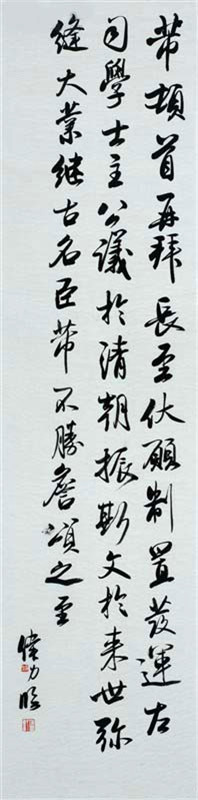 芾頓首再拜長至伏願制置發運左
司學士主公議於清朝振斯文於来世弥
縫大業継古名臣芾不勝詹頌之至